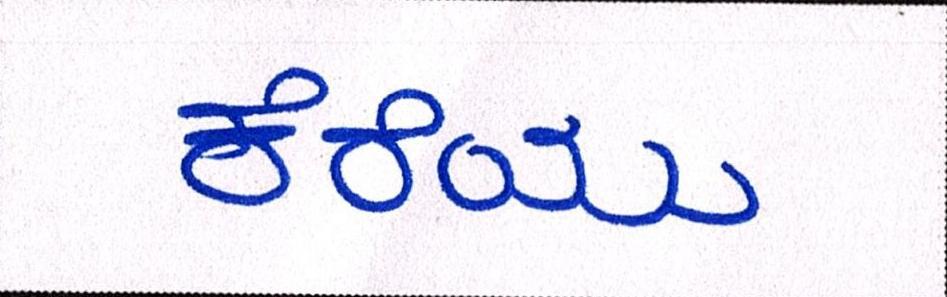 ಕೆರೆಯು